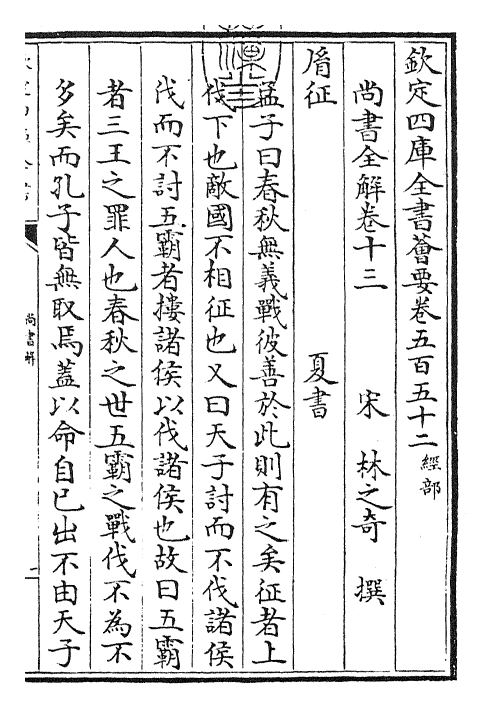 欽定四庫全書薈要卷五百五十二 經部
尚書全解卷十三 宋 林之奇 撰
胤征 夏書
孟子曰春秋無義戰彼善於此則有之矣征者上
伐下也敵國不相征也又曰天子討而不伐諸侯
伐而不討五霸者摟諸侯以伐諸侯也故曰五霸
者三王之罪人也春秋之世五霸之戰伐不為不
多矣而孔子皆無取焉蓋以命自己出不由天子
尚書解
一